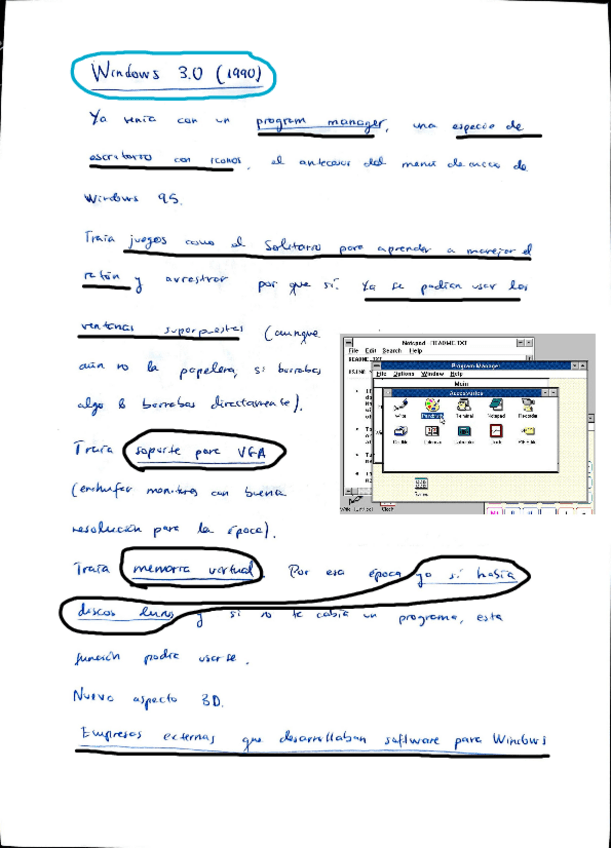 Windows 3.0 (1990)
Ya venía con un program manager, una especie de
escritorio con iconos, el antecesor del menú de inicio de
Windows 95.
Traía juegos como el Solitario para aprender a manejar el
ratón y arrastrar por que sí. Ya se podían usar las
ventanas superpuestas (aunque
aún no la papelera, si borrabas
algo lo borrabas directamente).
Traía soporte para VGA
(enchufar monitores con buena
resolución para la época).
Traía memoria virtual. Por esa época ya sí había
discos duros y si no te cabía un programa, esta
función podía usarse.
Nuevo aspecto 3D.
Empresas externas que desarrollaban software para Windows
Notepad - README.TXT
File Edit Search Help
Program Manager
File Options Window Help
Main
Accessories
Write Paintbrush Terminal Notepad Recorder
Cardfile Calendar Calculator Clock